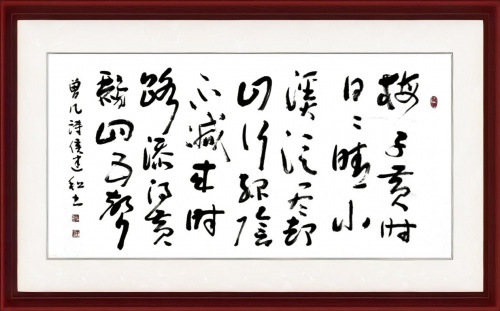 梅子黄时
日日晴小
溪泛尽却
山行绿阴
不减来时
路添得黄
鹂四五声
曾几诗建书